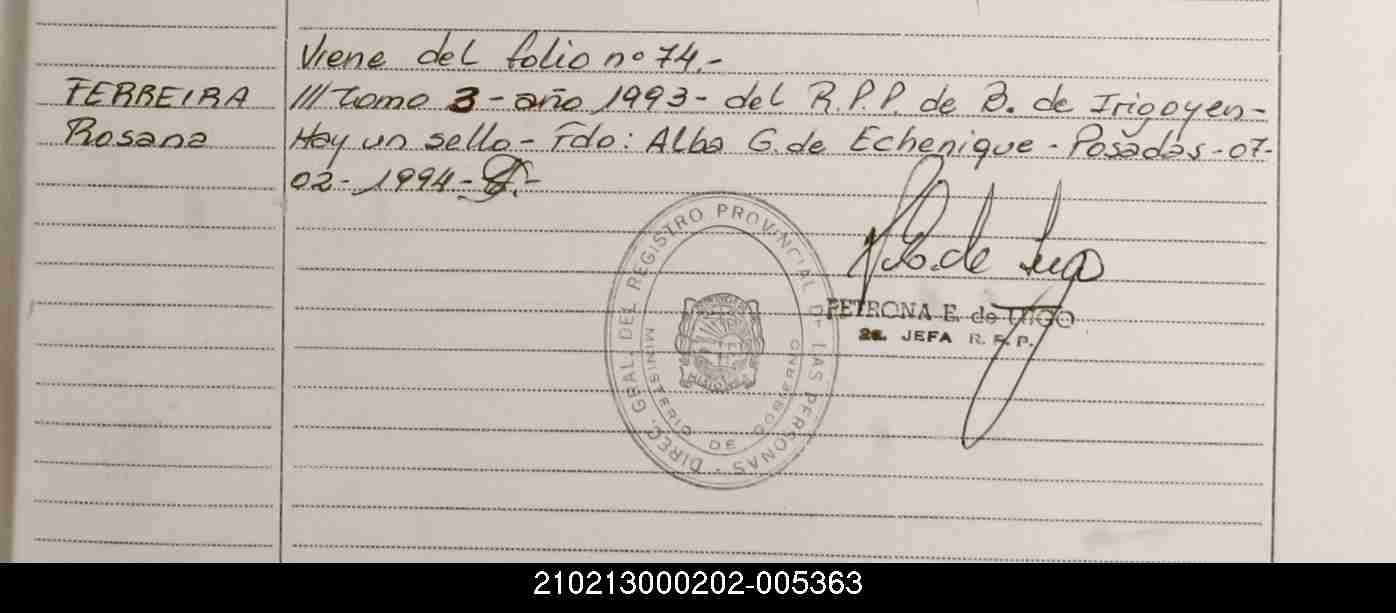 Viene del folio nº 74.-
FERREIRA /// Tomo 3 - año 1993 - del R.P.P. de B. de Irigoyen -
Rosana Hay un sello - Fdo: Alba G. de Echenique - Posadas - 07-
02 - 1994 -
DIREC. GRAL. DEL REGISTRO PROVINCIAL DE LAS PERSONAS
MINISTERIO DE GOBIERNO
PETRONA E. de
2a. JEFA R. P. P.
210213000202-005363